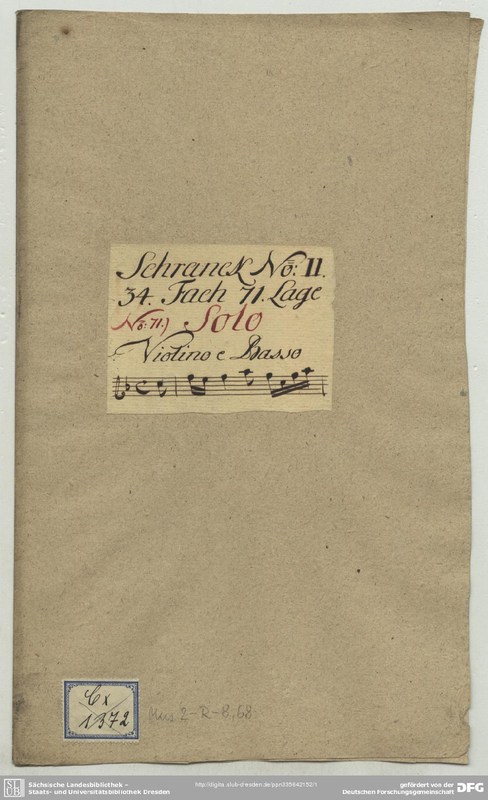 Schranck No: II.
34. Fach 71. Lage
No: 71.) Solo
Violino e Basso
Cx
1372
Mus. 2-R-8,68
SLUB
Sächsische Landesbibliothek –
Staats- und Universitätsbibliothek Dresden
http://digital.slub-dresden.de/ppn335642152/1
gefördert von der
Deutschen Forschungsgemeinschaft
DFG